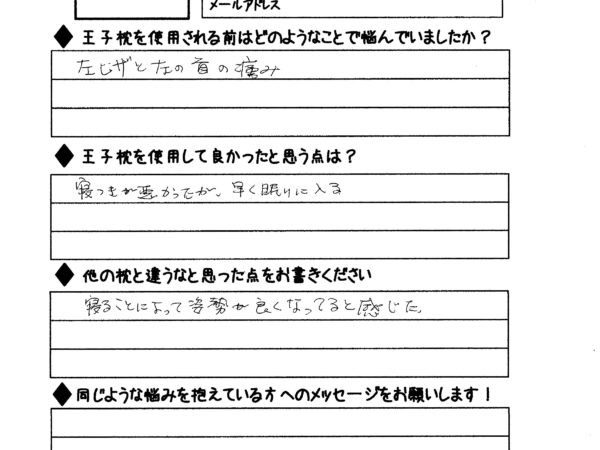 メールアドレス
◆ 王子枕を使用される前はどのようなことで悩んでいましたか？
左ヒザと左の首の痛み
◆ 王子枕を使用して良かったと思う点は？
寝つきが悪かったが、早く眠りに入る
◆ 他の枕と違うなと思った点をお書きください
寝ることによって姿勢が良くなってると感じた。
◆ 同じような悩みを抱えている方へのメッセージをお願いします！